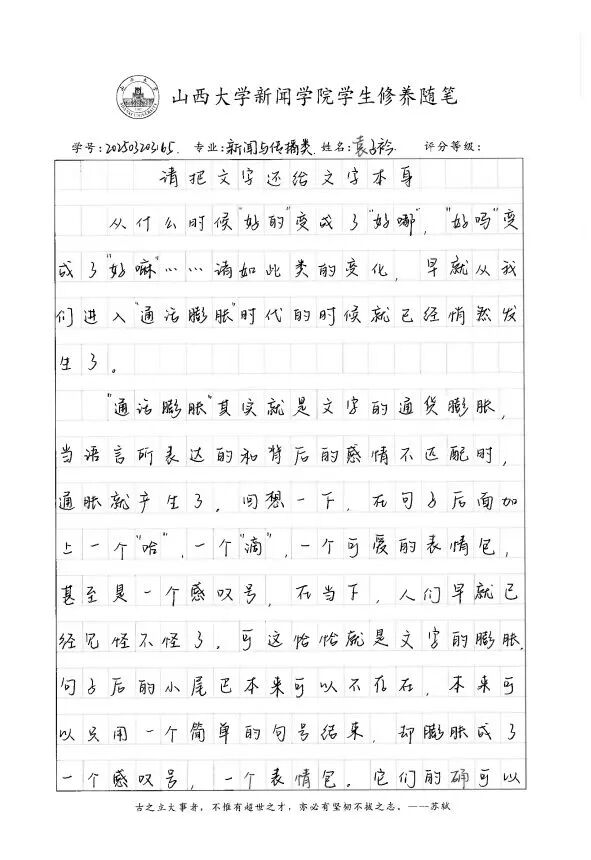 山西大学新闻学院学生修养随笔
学号:202503203165. 专业:新闻与传播类. 姓名:袁子衿. 评分等级:
请把文字还给文字本身
从什么时候“好的”变成了“好嘟”，“好吗”变
成了“好嘛”……诸如此类的变化，早就从我
们进入“通话膨胀”时代的时候就已经悄然发
生了。
“通话膨胀”其实就是文字的通货膨胀，
当语言所表达的和背后的感情不匹配时，
通胀就产生了，回想一下，在句子后面加
上一个“哈”，一个“滴”，一个可爱的表情包，
甚至是一个感叹号，在当下，人们早就已
经见怪不怪了，可这恰恰就是文字的膨胀.
句子后的小尾巴本来可以不存在，本来可
以只用一个简单的句号结束，却膨胀成了
一个感叹号，一个表情包。它们的确可以
古之立大事者，不惟有超世之才，亦必有坚韧不拔之志。——苏轼